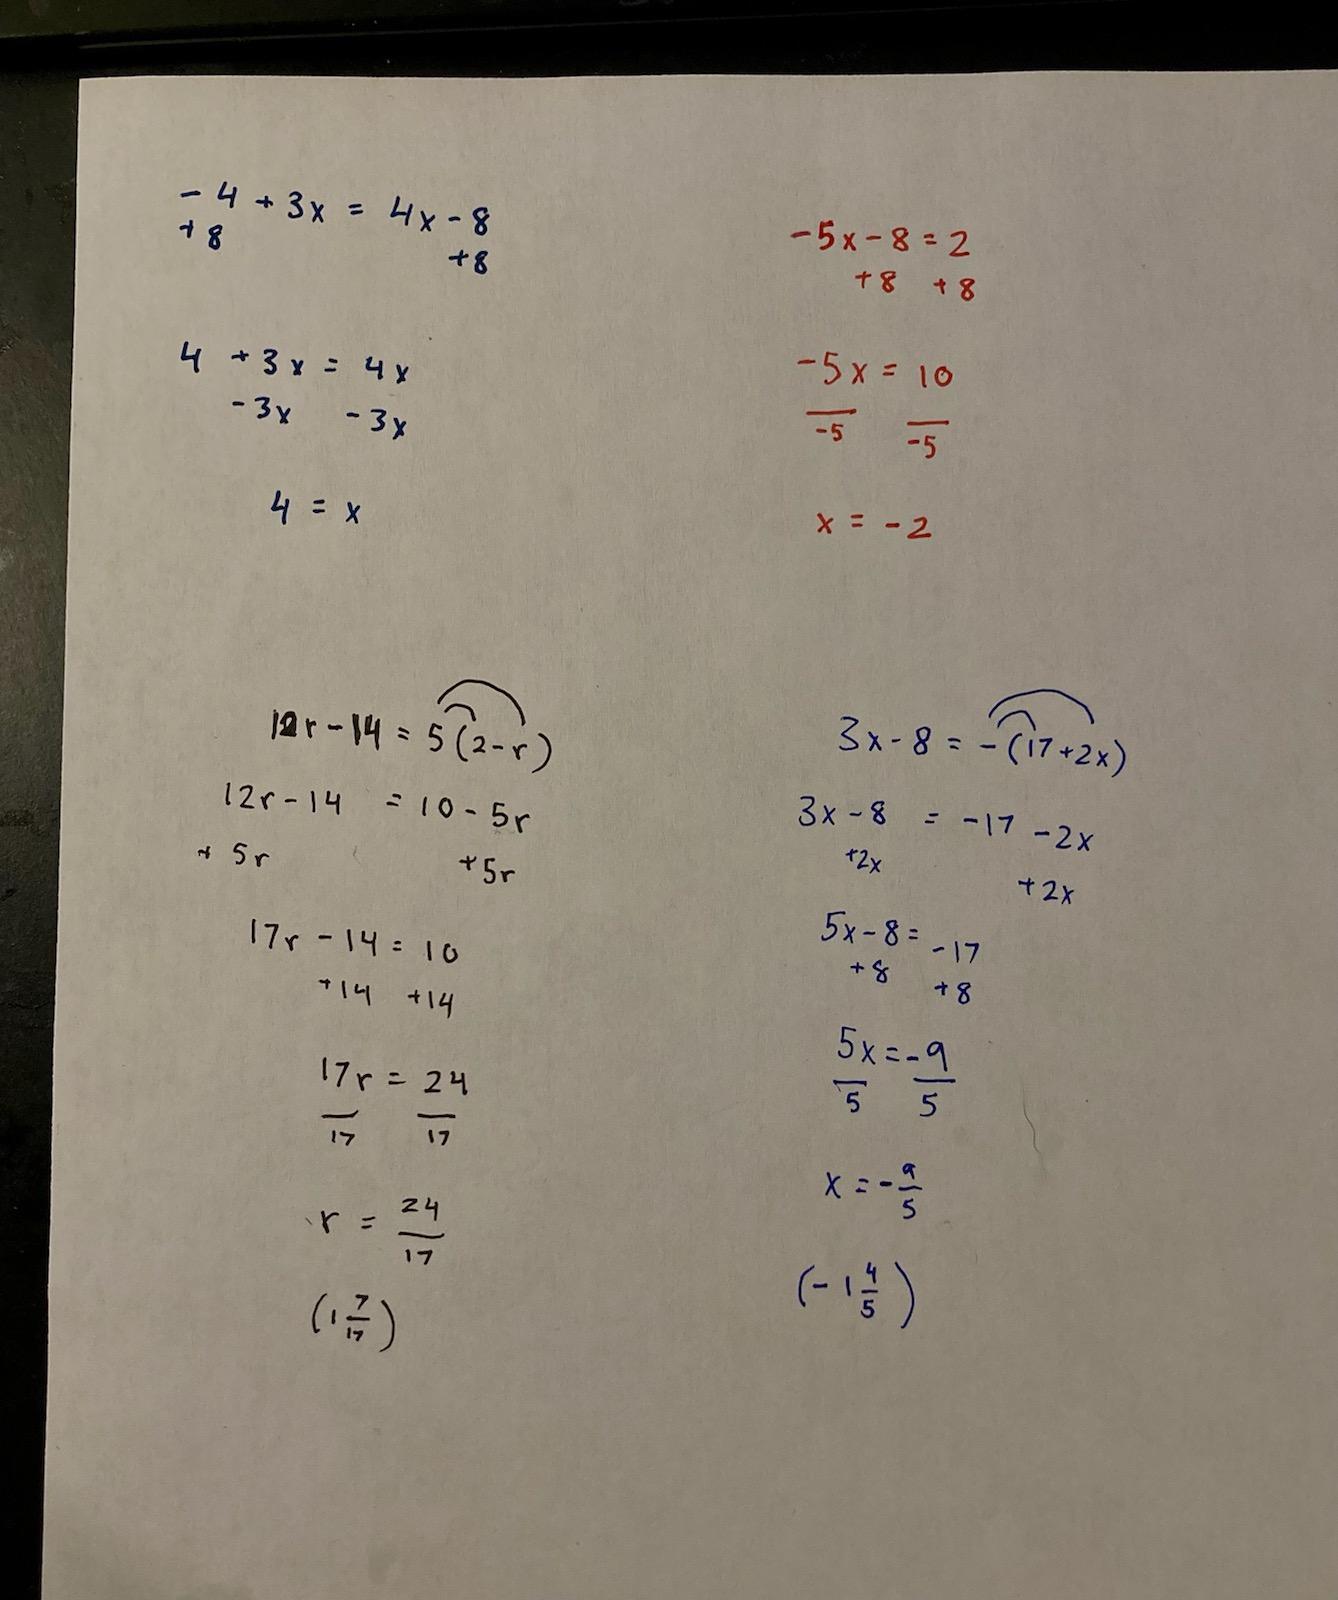 - 4 + 3x = 4x - 8
+ 8
+8
4 + 3x = 4x
- 3x - 3x
4 = x
-5x - 8 = 2
+ 8 + 8
-5x = 10
-5 -5
x = - 2
12r - 14 = 5 (2 - r)
12r - 14 = 10 - 5r
+ 5r +5r
17r - 14 = 10
+14 +14
17r = 24
17 17
r = 24
17
(1 7/17)
3x - 8 = - (17 + 2x)
3x - 8 = -17 - 2x
+2x
+ 2x
5x - 8 = -17
+ 8
+ 8
5x = -9
5 5
x = - 9/5
(- 1 4/5)